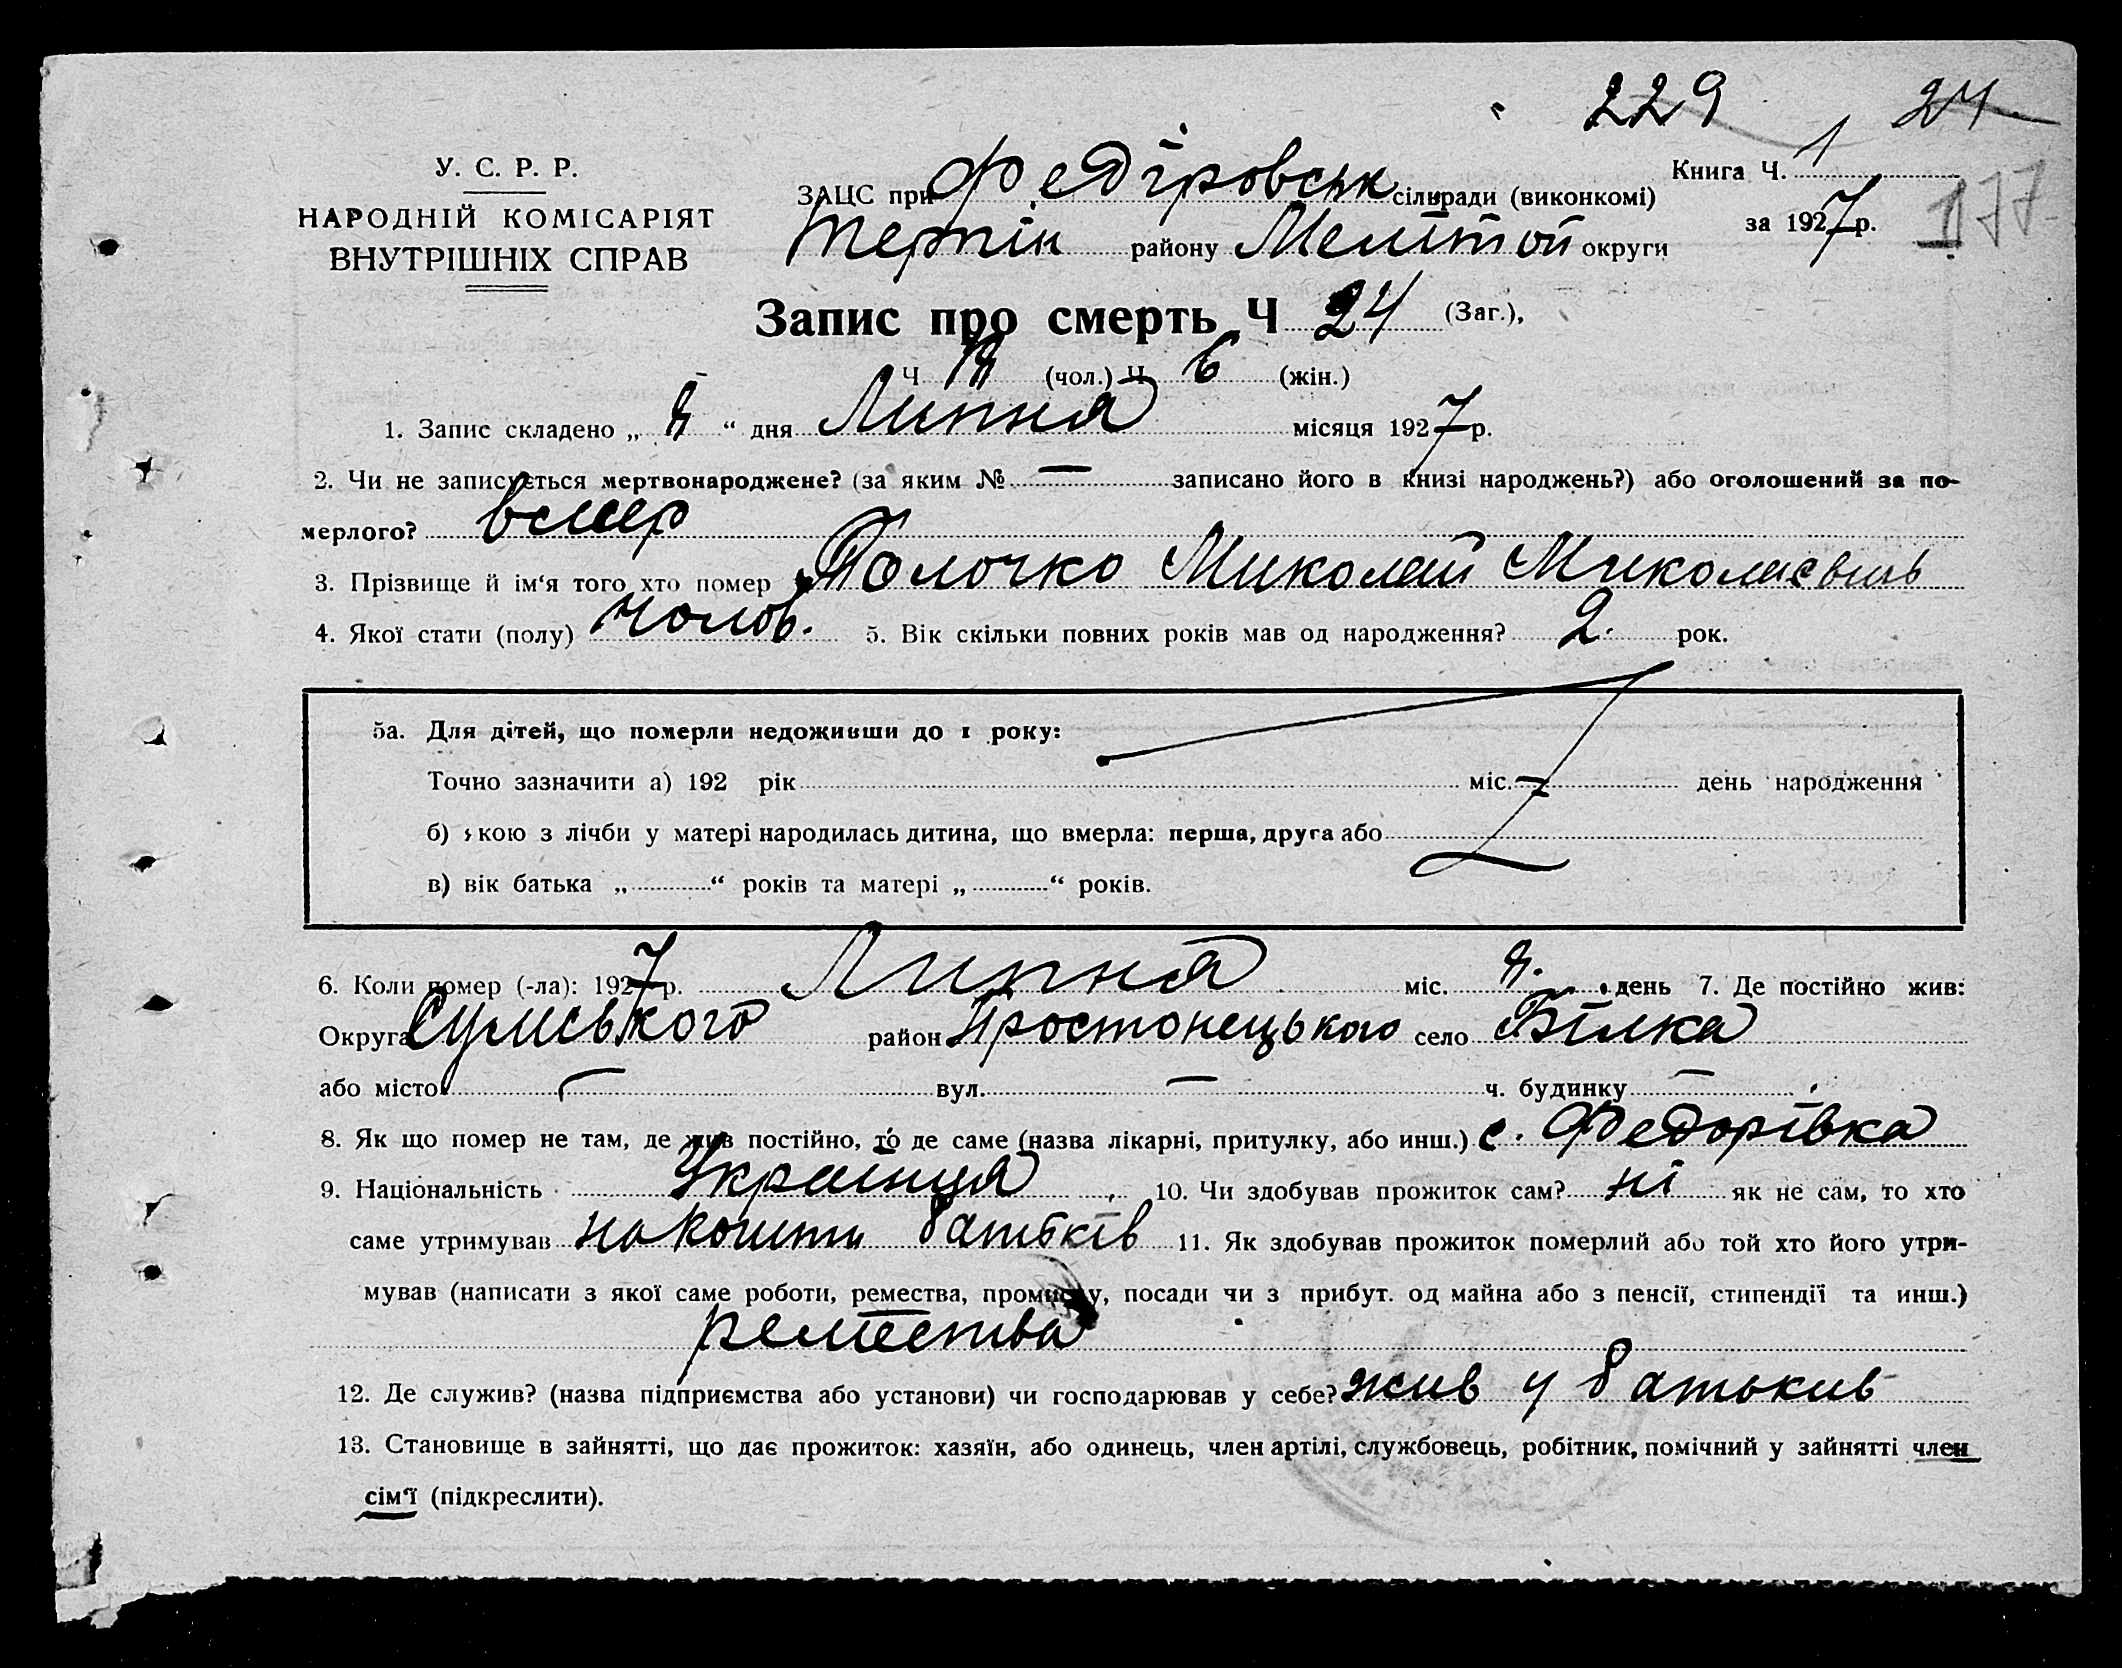 229 24
У. С. Р. Р.
НАРОДНІЙ КОМІСАРІЯТ
ВНУТРІШНІХ СПРАВ
ЗАЦС при Федіровськ сільради (виконкомі)
Терпін району Меліт ой округи
Книга Ч. 1
за 1927 р.
177
Запис про смерть Ч 24 (Заг.),
Ч (чол.) Ч 6 (жін.)
1. Запис складено „ “ дня Липня місяця 1927 р.
2. Чи не записується мертвонароджене? (за яким № — записано його в книзі народжень?) або оголошений за по-
мерлого? вмер
3. Прізвище й ім‘я того хто помер Толочко Миколай Миколаєвич
4. Якої стати (полу) чолов. 5. Вік скільки повних років мав од народження? 2. рок.
5а. Для дітей, що померли недоживши до 1 року:
Точно зазначити а) 192 рік міс. день народження
б) якою з лічби у матері народилась дитина, що вмерла: перша, друга або
в) вік батька „ “ років та матері „ “ років.
6. Коли помер (-ла): 1927 р. Липня міс. день 7. Де постійно жив:
Округа Сумського район Тростонецького село Білка
або місто — вул. — ч. будинку —
8. Як що помер не там, де жив постійно, то де саме (назва лікарні, притулку, або инш.) с. Федорівка
9. Національність Українця 10. Чи здобував прожиток сам? ні як не сам, то хто
саме утримував на кошти батьків 11. Як здобував прожиток померлий або той хто його утри-
мував (написати з якої саме роботи, ремества, промислу, посади чи з прибут. од майна або з пенсії, стипендії та инш.)
ремества
12. Де служив? (назва підприємства або установи) чи господарював у себе? жив у батькив
13. Становище в зайнятті, що дає прожиток: хазяїн, або одинець, член артілі, службовець, робітник, помічний у зайнятті член
сім‘ї (підкреслити).